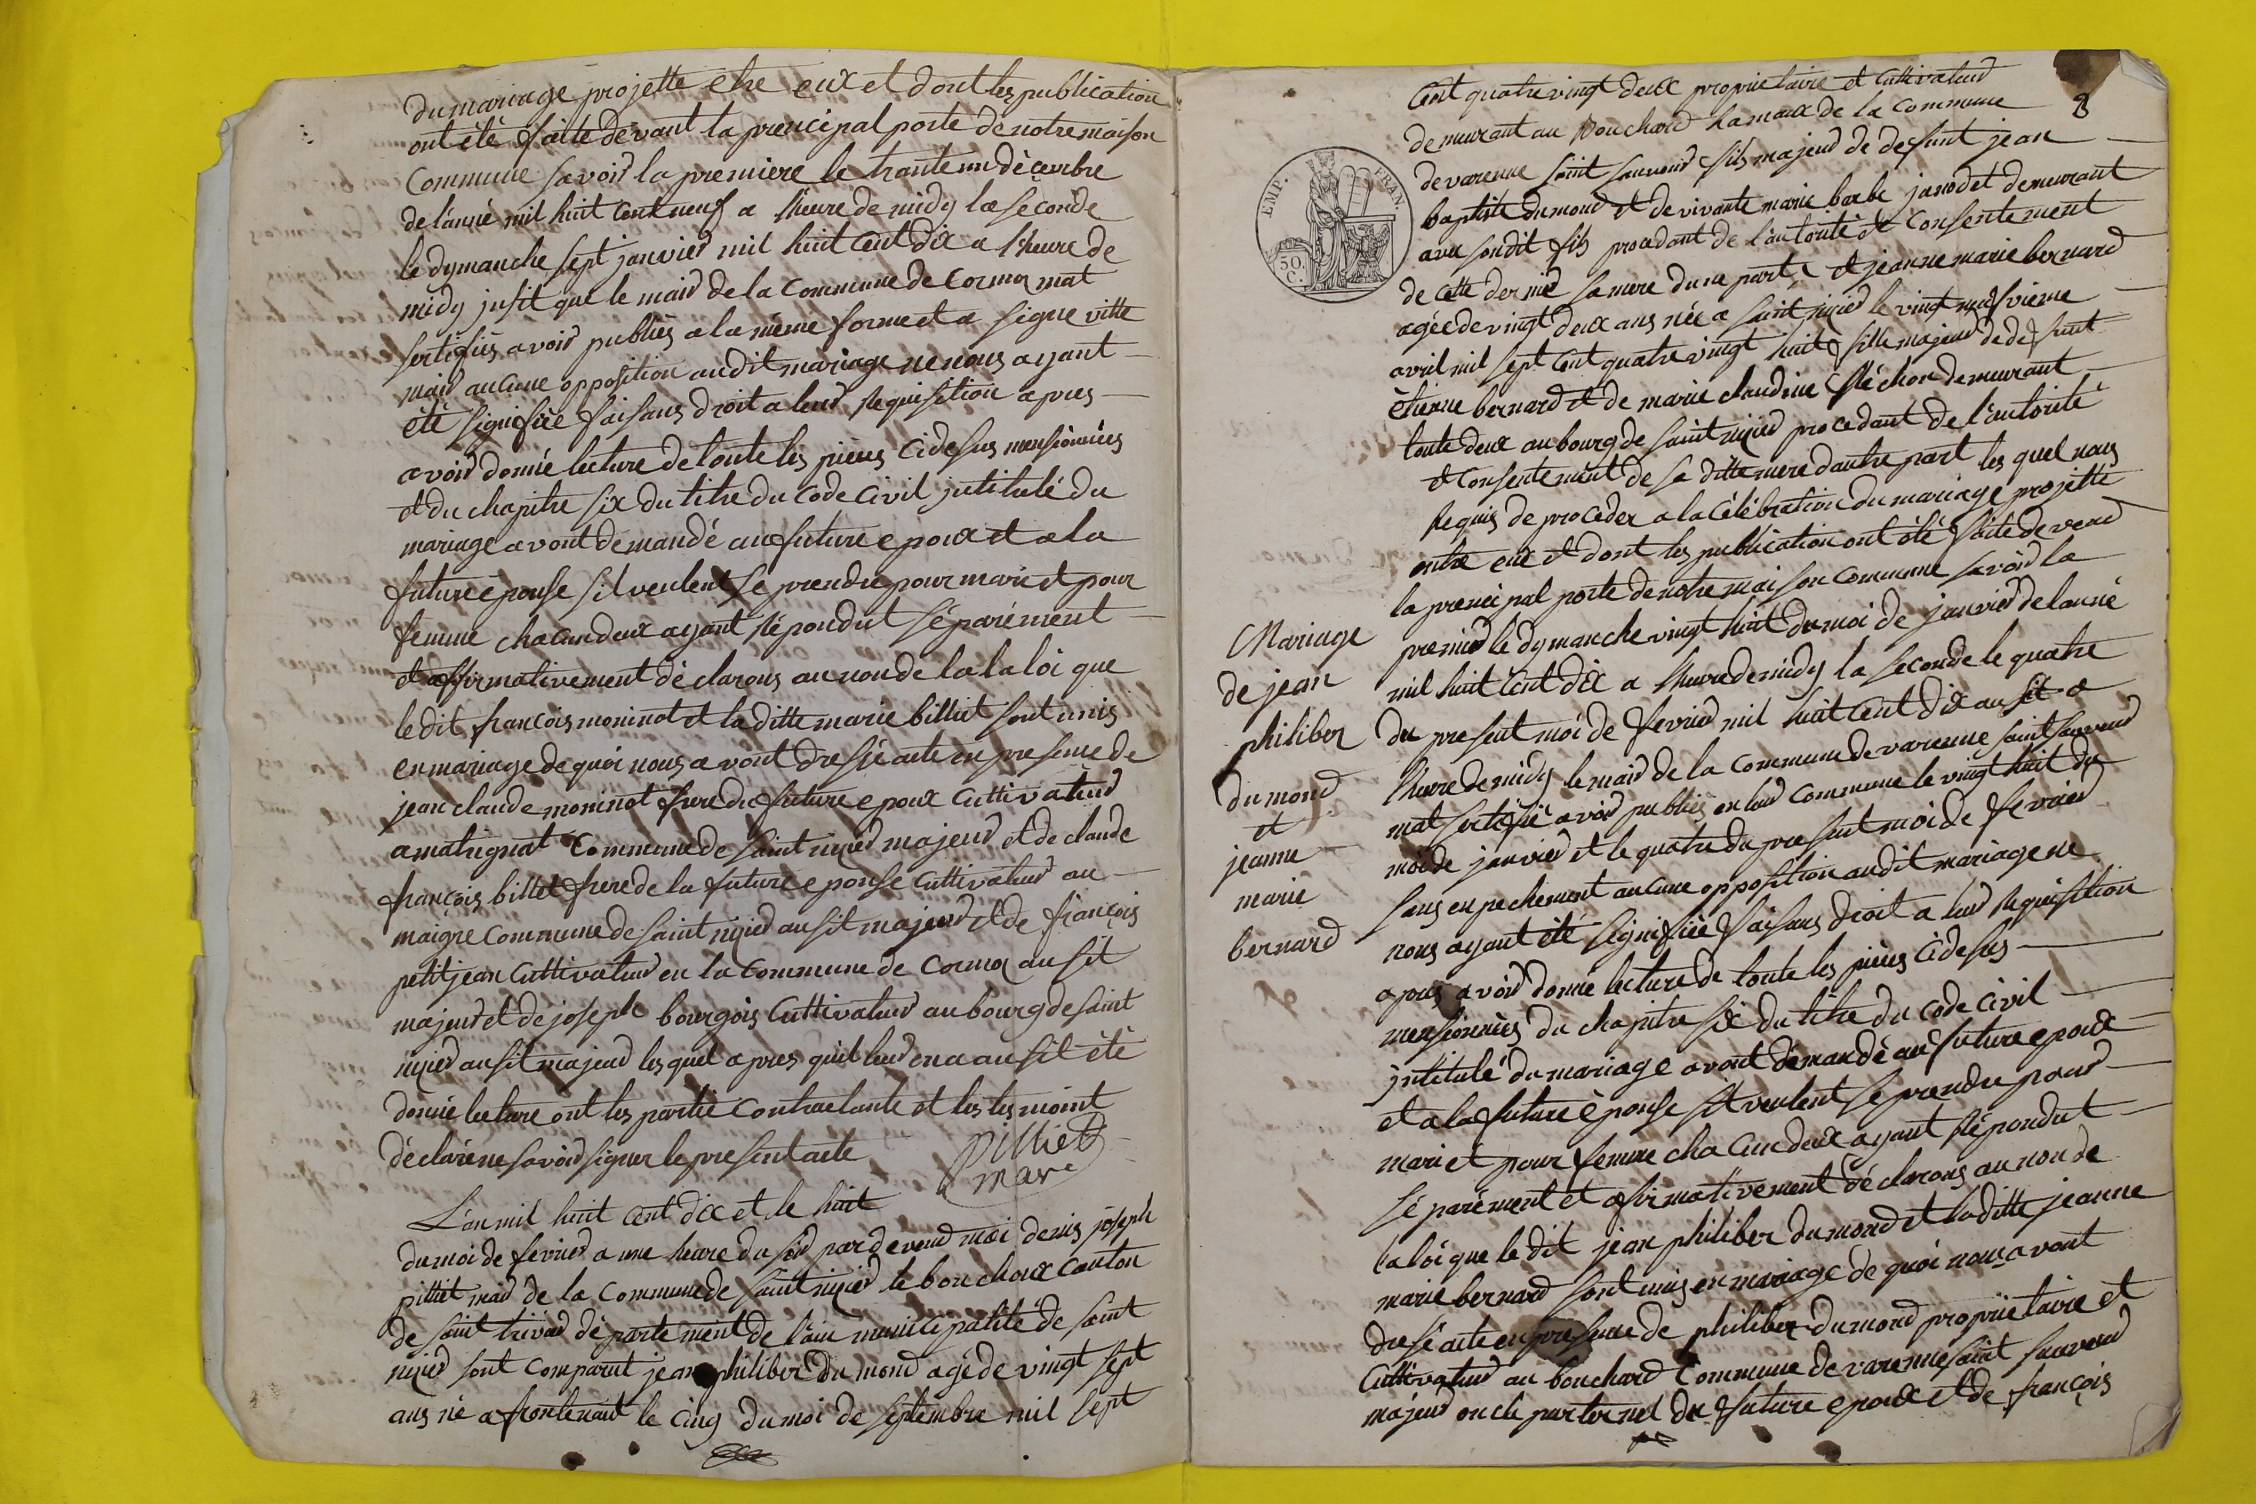 du mariage projette etre eux et dont les publication
ont été faitte devant la prencipal porte de notre maison
Commune savoir la premiere le trante un décembre
de l'anné mil huit Cent neuf a l'heure de midy la seconde
le dymanche sept janvier mil huit Cent dix a l'heure de
midy jusit que le maid de la Commune de Cormoz mat
sertifiés avoir publiés a la même forme et a signe vitte
maid aucune opposition audit mariage ne nous ayant
été signifiée faisans droit a leur Requisition apres
avoir donné lecture de toute les pièces Cidesus mensionnées
et du chapitre six du titre du Code Civil jntitulé du
mariage avont demandé au future epoux et a la
future epouse sil veulent se prendre pour mari et pour
femme chacun deux ayant Répondut séparément
et affirmativement déclarons au non de la la loi que
le dit françois moninot et la ditte marie billiet sont unis
en mariage de quoi nous avont dressé acte en presence de
jean claude moninot frere du future epoux Cultivateur
a matrignat Commune de saint nizier majeur et de claude
françois billet frere de la future epouse Cultivateur au
maigre Commune de saint nizier ausit majeur et de françois
petitjean Cultivateur en la Commune de Cormoz ausit
majeur et de joseph bourgois Cultivateur au bourg de saint
nizier ausit majeur les quel apres quil leur en a ausit été
donné lecture ont les partie Contractante et les tesmoint
déclaré ne savoir signer le present acte
Pilliet
mar
L'an mil huit cent dix et le huit
du moi de fevrier a une heure du soir pardevend moi denis joseph
pilliet maid de la Commune de saint nizier le bouchoux Canton
de saint trivier département de l'ain municipalité de saint
nizier sont Comparut jean philiber du mond agé de vingt sept
ans né a frontenaut le Cinq du moi de septembre mil sept
8
Cent quatre vingt deux proprietaire et Cultivateur
demeurant au Bouchard hamaux de la Commune
de varenne saint sauveur fils majeur de defunt jean
baptiste dumond et de vivante marie barbe janodet demeurant
avec sondit fils procedant de l'autorité et Consentement
de cette dernier sa mere dune part et jeanne marie bernard
agée de vingt deux ans née a saint nizier le vingt neufvieme
avril mil sept Cent quatre vingt huit fille majeur de defunt
étienne bernard et de marie claudine fléchon demeurant
toute deux au bourg de saint nizier procedant de l'autorité
et Consentement de sa ditte mere dautre part les quel nous
Requis de proceder a la célébration du mariage projette
entre eux et dont les publication ont été faite devend
la prencipal porte de notre maison Commune savoir la
premier le dymanche vingt huit du moi de janvier de lanné
mil huit Cent dix a l'heure de midy la seconde le quatre
du present moi de fevrier mil huit Cent dix ausit a
l'heure de midy le maid de la Commune de varenne saint sauveur
mat sertifié avoir publiés en leur Commune le vingt huit du
moi de janvier et le quatre du present moi de fevrier
sans enpechement aucune opposition audit mariage ne
nous ayant été signifiée faisans droit a leur Requisition
apres avoir donné lecture de toute les pièces Cidesus
mensionnées du chapitre six du titre du Code Civil
jntitulé du mariage avont demandé au future epoux
et a la future épouse sil veulent se prendre pour
mari et pour femme chacun deux ayant Répondut
séparément et afirmativement déclarons au non de
la loi que le dit jean philiber dumond et la ditte jeanne
marie bernard sont unis en mariage de quoi nous avont
dressé acte en presence de philiber dumond proprietaire et
Cultivateur au bouchard Commune de varenne saint sauveur
majeur oncle parternel du future epoux et de françois
Mariage
de jean
philiber
du mond
et
jeanne
marie
bernard
EMP. FRAN.
50.
C.